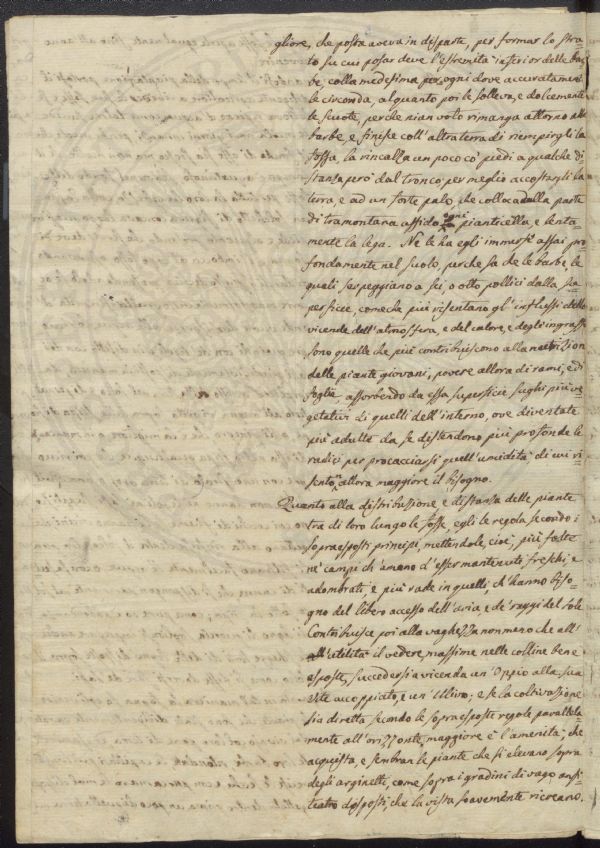 gliore, che posta aveva in disparte, per formar lo stra-
to su cui posar deve l'estremità inferior delle bar-
be, colla medesima per ogni dove accuratamen-
te circonda, alquanto poi le solleva, e dolcemente
le scuote, perche niun voto rimanga attorno alle
barbe, e finisce coll'altra terra di riempirgli la
fossa, la rincalza un poco co' piedi a qualche di-
stanza però dal tronco per meglio accostargli la
terra, e ad un forte palo, che colloca dalla parte
di tramontana affida ogni pianticella, e lenta-
mente la lega. Ne le ha egli immerse assai pro-
fondamente nel suolo, perche sa che le barbe, le
quali serpeggiano a sei, o otto pollici dalla su-
perficie, come che più risentano gl'influssi delle
vicende dell'atmosfera, e del calore, e degli ingrassi
sono quelle che più contribuiscono alla nutrizion
delle piante giovani, povere allora di rami, e di
foglie, assorbendo da essa superficie sughi più ve-
getativi di quelli dell'interno, ove diventate
più adulte da se distendono più profonde le
radici per procacciarsi quell'umidità di cui ri-
senton allora maggiore il bisogno.
Quanto alla distribuzione e distanza delle piante
tra di loro lungo le fosse, egli le regola secondo i
sopraesposti principj, mettendole, cioè, più faste
ne' campi ch'amano d'esser mantenuti freschi, e
adombrati, e più rade in quelli, ch'hanno biso-
gno del libero accesso dell'aria, e de' raggi del Sole
Contribuisce poi alla vaghezza non meno che all'
utilità il vedere, massime nelle colline bene
esposte, succedersi a vicenda un'Oppio alla sua
Vite accoppiato, e un'Ulivo; e se la coltivazione
sia diretta secondo le sopraesposte regole parallela-
mente all'orizzonte, maggiore è l'amenità, che
acquista, e sembran le piante che si elevano sopra
degli arginetti, come sopra i gradini di vago anfi-
teatro disposti, che la vista soavemente ricreano.